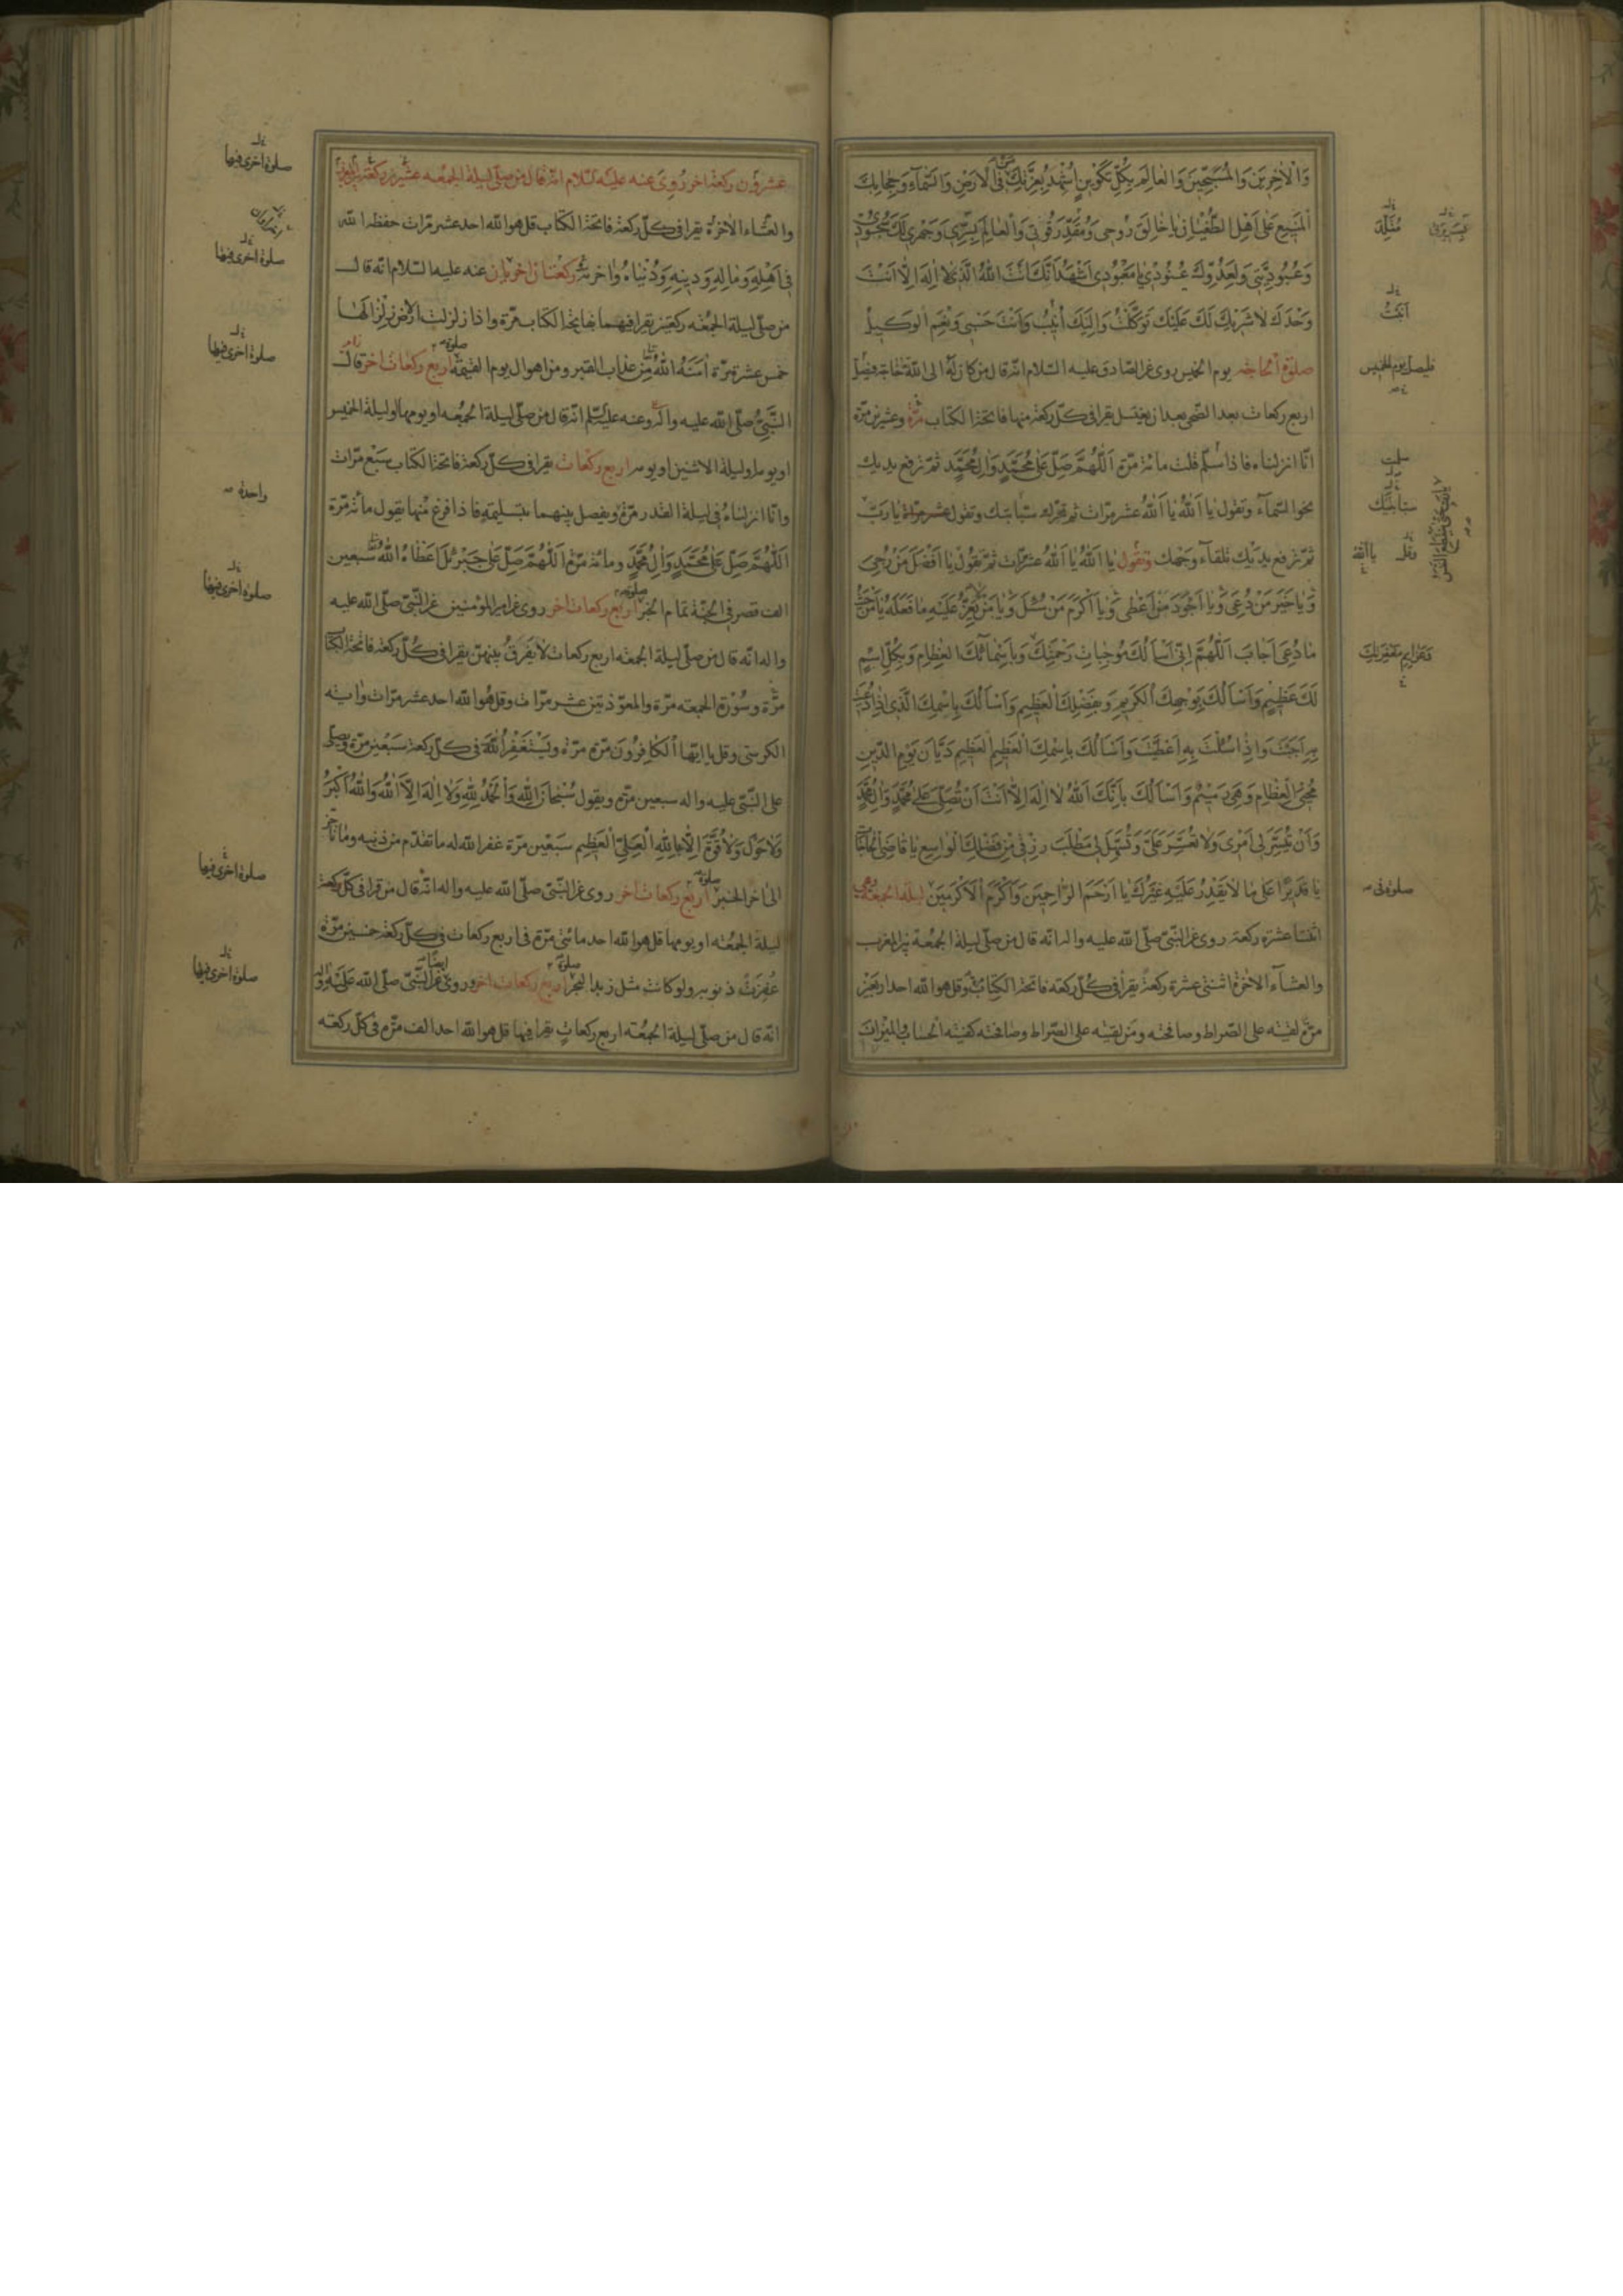 وَالْاٰخِرِينَ وَالْمُسَبِّحِينَ وَالْعَالَمِ بِكُلِّ تَكْوِينٍ اُشْهِدُ بِعِزَّتِكَ فِى الْاَرَضِينَ وَالسَّمَاءِ وَحِجَابِكَ
الْمَنِيعِ عَلَى اَهْلِ الطُّغْيَانِ يَا خَالِقَ رُوحِى وَمُقَدِّرَ قُوتِى وَالْعَالِمَ بِسِرِّى وَجَهْرِى لَكَ سُجُودِى
وَعُبُودِيَّتِى وَلِعَدُوِّكَ عُنُودِى يَا مَعْبُودِى اَشْهَدُ اَنَّكَ اَنْتَ اللهُ الَّذِى لَا اِلٰهَ اِلَّا اَنْتَ
وَحْدَكَ لَا شَرِيكَ لَكَ عَلَيْكَ تَوَكَّلْتُ وَاِلَيْكَ اُنِيبُ وَاَنْتَ حَسْبِى وَنِعْمَ الْوَكِيلُ
صلوة الحاجة يوم الخميس روى عن الصادق عليه السلام انه قال من كان له الى الله حاجة فليصل
اربع ركعات بعد الضحى بعد ان يغتسل يقرا فى كل ركعة منها فاتحة الكتاب مرة وعشرين مرة
انا انزلناه فاذا سلم قلت مائة مرة اَللّٰهُمَّ صَلِّ عَلٰى مُحَمَّدٍ وَاٰلِ مُحَمَّدٍ ثم ترفع يديك
نحو السماء وتقول يَا اَللهُ يَا اَللهُ عشر مرات ثم تحرك سبابتك وتقول عشر مرات يا رب
ثم ترفع يديك تلقاء وجهك وتقول يا اَللهُ يا اَللهُ عشر مرات ثم تقول يَا اَفْضَلَ مَنْ رُجِىَ
وَيَا خَيْرَ مَنْ دُعِىَ وَيَا اَجْوَدَ مَنْ اَعْطٰى وَيَا اَكْرَمَ مَنْ سُئِلَ وَيَا مَنْ لَا يَعِزُّ عَلَيْهِ مَا فَعَلَهُ يَا مَنْ حَيْثُ
مَا دُعِىَ اَجَابَ اَللّٰهُمَّ اِنِّى اَسْاَلُكَ مُوجِبَاتِ رَحْمَتِكَ وَبِاَسْمَائِكَ الْعِظَامِ وَبِكُلِّ اسْمٍ
لَكَ عَظِيمٍ وَاَسْاَلُكَ بِوَجْهِكَ الْكَرِيمِ وَبِفَضْلِكَ الْعَظِيمِ وَاَسْاَلُكَ بِاسْمِكَ الَّذِى اِذَا دُعِيتَ
بِهِ اَجَبْتَ وَاِذَا سُئِلْتَ بِهِ اَعْطَيْتَ وَاَسْاَلُكَ بِاسْمِكَ الْعَظِيمِ الْعَظِيمِ دَيَّانِ يَوْمِ الدِّينِ
مُحْيِى الْعِظَامِ وَهِىَ رَمِيمٌ وَاَسْاَلُكَ بِاَنَّكَ اَللهُ لَا اِلٰهَ اِلَّا اَنْتَ اَنْ تُصَلِّىَ عَلٰى مُحَمَّدٍ وَاٰلِ مُحَمَّدٍ
وَاَنْ تُيَسِّرَ لِى اَمْرِى وَلَا تُعَسِّرَ عَلَىَّ وَتُسَهِّلَ لِى مَطْلَبَ رِزْقِى مِنْ فَضْلِكَ الْوَاسِعِ يَا قَاضِىَ الْحَاجَاتِ
يَا قَدِيرًا عَلٰى مَا لَا يَقْدِرُ عَلَيْهِ غَيْرُكَ يَا اَرْحَمَ الرَّاحِمِينَ وَاَكْرَمَ الْاَكْرَمِينَ ليلة الجمعة وهى
اثنتا عشرة ركعة روى عن النبى صلى الله عليه واله انه قال من صلى ليلة الجمعة بين المغرب
والعشاء الاخرة اثنتى عشرة ركعة يقرا فى كل ركعة فاتحة الكتاب مرة وقل هو الله احد اربعين
مرة لقيته على الصراط وصافحته ومن لقيته على الصراط وصافحته كفيته الحساب والميزان
فليصل يوم الخميس
اَنَبْتُ
عشرون ركعة اخر روى عنه عليه السلام انه قال من صلى ليلة الجمعة عشرين ركعة بين المغرب
والعشاء الاخرة يقرا فى كل ركعة فاتحة الكتاب قل هو الله احد عشر مرات حفظه الله
فى اَهْلِهِ وَمَالِهِ وَدِينِهِ وَدُنْيَاهُ وَاٰخِرَتِهِ ركعتان اخريان عنه عليه السلام انه قال
من صلى ليلة الجمعة ركعتين يقرا فيهما بفاتحة الكتاب مرة واذا زلزلت الارض زلزالها
خمس عشرة مرة اٰمَنَهُ اللهُ مِنْ عذاب القبر ومن اهوال يوم القيمة اربع ركعات اخر قال
النبى صلى الله عليه واله وعنه عليه السلم انه قال من صلى ليلة الجمعة او يومها او ليلة الخميس
او يومه او ليلة الاثنين او يومه اربع ركعات يقرا فى كل ركعة فاتحة الكتاب سبع مرات
وانا انزلناه فى ليلة القدر مرة ويفصل بينهما بتسليمة فاذا فرغ منها يقول مائة مرة
اَللّٰهُمَّ صَلِّ عَلٰى مُحَمَّدٍ وَاٰلِ مُحَمَّدٍ ومائة مرة اَللّٰهُمَّ صَلِّ عَلٰى جَبْرَئِلَ اَعْطَاهُ اللهُ سبعين
الف قصر فى الجنة تمام الخبر اربع ركعات اخر روى عن امير المؤمنين عن النبى صلى الله عليه
واله انه قال من صلى ليلة الجمعة اربع ركعات لا يفرق بينهن يقرا فى كل ركعة فاتحة الكتاب
مرة وسورة الجمعة مرة والمعوذتين عشر مرات وقل هو الله احد عشر مرات واية
الكرسى وقل يا ايها الكافرون مرة مرة ويستغفر الله فى كل ركعة سبعين مرة ويصلى
على النبى عليه واله سبعين مرة ويقول سُبْحَانَ اللهِ وَالْحَمْدُ لِلّٰهِ وَلَا اِلٰهَ اِلَّا اللهُ وَاللهُ اَكْبَرُ
وَلَا حَوْلَ وَلَا قُوَّةَ اِلَّا بِاللهِ الْعَلِىِّ الْعَظِيمِ سبعين مرة غفر الله له ما تقدم من ذنبه وما تاخر
الى اخر الخبر اربع ركعات اخر روى عن النبى صلى الله عليه واله انه قال من قرا فى كل ركعة
ليلة الجمعة او يومها قل هو الله احد مائتى مرة فى اربع ركعات فى كل ركعة خمسين مرة
غفرت ذنوبه ولو كانت مثل زبد البحر اربع ركعات اخر وروى عن النبى صلى الله عليه واله
انه قال من صلى ليلة الجمعة اربع ركعات يقرا فيها قل هو الله احد الف مرة فى كل ركعة
صلوة اخرى فيها
صلوة اخرى فيها
صلوة اخرى فيها
واحدة
صلوة اخرى فيها
صلوة اخرى فيها
صلوة اخرى فيها